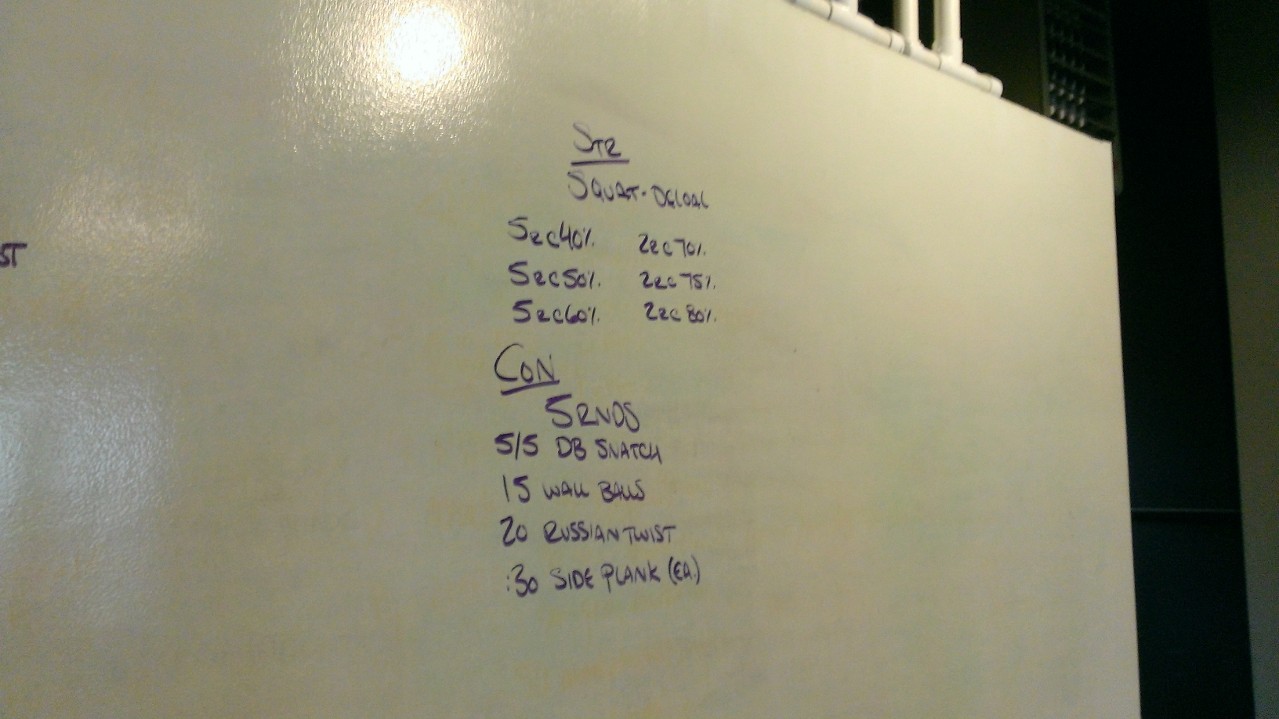 ST
STR
SQUAT-DELOAD
5@40% 2@70%
5@50% 2@75%
5@60% 2@80%
CON
5RNDS
5/5 DB SNATCH
15 WALL BALLS
20 RUSSIAN TWIST
:30 SIDE PLANK (EA.)